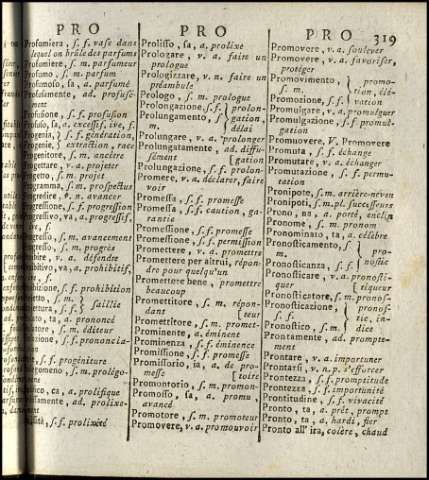 PRO PRO PRO 319
Profumiera, s. f. vase dans
lequel on brûle des parfums
Profumiere, s. m. parfumeur
Profumo, s. m. parfum
Profumoso, sa, a. parfumé
Profusamente, ad. profusé-
ment
Profusione, s. f. profusion
Profuso, sa, a. excessif, ive, f.
Progenia, s. f. génération,
Progenie, extraction, race
Progenitore, s. m. ancêtre
Progettare, v. a. projeter
Progetto, s. m. projet
Programma, s. m. prospectus
Progredire, v. n. avancer
Progressione, s. f. progression
Progressivo, va, a. progressif,
ve, f.
Progresso, s. m. avancement
s. m. progrès
v. a. défendre
va, a. prohibitif,
s. f. prohibition
s. m. saillie
s. f.
ta, a. prononcé
s. m. éditeur
s. f. prononcia-
tion
s. f. progéniture
s. m. prolégo-
ca, a. prolifique
ad. prolixe-
s. f. prolixité
Prolisso, sa, a. prolixe
Prologare, v. a. faire un
prologue
Prologizzare, v. n. faire un
préambule
Prologo, s. m. prologue
Prolongazione, s. f. prolon-
Prolungamento, s. gation,
m. délai
Prolungare, v. a. prolonger
Prolungatamente, ad. diffu-
sément [gation
Prolungazione, s. f. prolon-
Promere, v. a. déclarer, faire
voir
Promessa, s. f. promesse
Promessa, s. f. caution, ga-
rantie
Promessione, s. f. promesse
Promessione, s. f. permission
Promettere, v. a. promettre
Promettere per altrui, répon-
dre pour quelqu'un
Promettere bene, promettre
beaucoup
Promettitore, s. m. répon-
dant [teur
Promettitore, s. m. promet-
Prominente, a. éminent
Prominenza, s. f. éminence
Promissione, s. f. promesse
Promissorio, ia, a. de pro-
messe [toire
Promontorio, s. m. promon-
Promosso, sa, a. promu,
avancé
Promotore, s. m. promoteur
Promovere, v. a. promouvoir
Promovere, v. a. soulever
Promovere, v. a. favoriser,
protéger
Promovimento, promo-
s. m. tion, élé-
Promozione, s. f. vation
Promulgare, v. a. promulguer
Promulgazione, s. f. promul-
gation
Promuovere, V. Promovere
Promuta, s. f. échange
Promutare, v. a. échanger
Promutazione, s. f. permu-
tation
Pronipote, s. m. arrière-neveu
Pronipoti, s. m. pl. successeurs
Prono, na, a. porté, enclin
Pronome, s. m. pronom
Pronominato, ta, a. célèbre
Pronosticamento, s. pro-
m. nostic
Pronosticanza, s. f.
Pronosticare, v. a. pronosti-
quer [tiqueur
Pronosticatore, s. m. pronos-
Pronosticazione, pronos-
s. f. tic, in-
Pronostico, s. m. dice
Prontamente, ad. prompte-
ment
Prontare, v. a. importuner
Prontarsi, v. n. p. s'efforcer
Prontezza, s. f. promptitude
Prontezza, s. f. importunité
Prontitudine, s. f. vivacité
Pronto, ta, a. prêt, prompt
Pronto, ta, a. hardi, fier
Pronto all' ira, colère, chaud